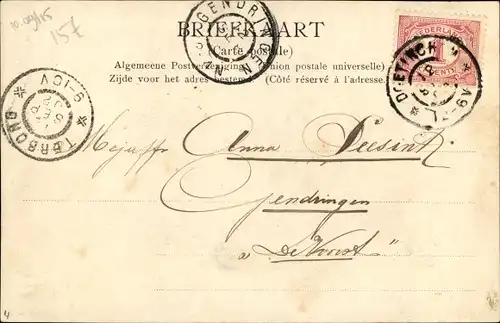 10.09/15
157
BRIEFKAART
(Carte postale)
Algemeene Postvereeniging (Union postale universelle)
Zijde voor het adres bestemd (Côté réservé à l'adresse.
GENDRINGEN
NEDERLAND
1
CENT
DOETINCHEM
TERBORG
9-10V
Mejuffr Anna Deesink
Gendringen
"De Voorst"
4